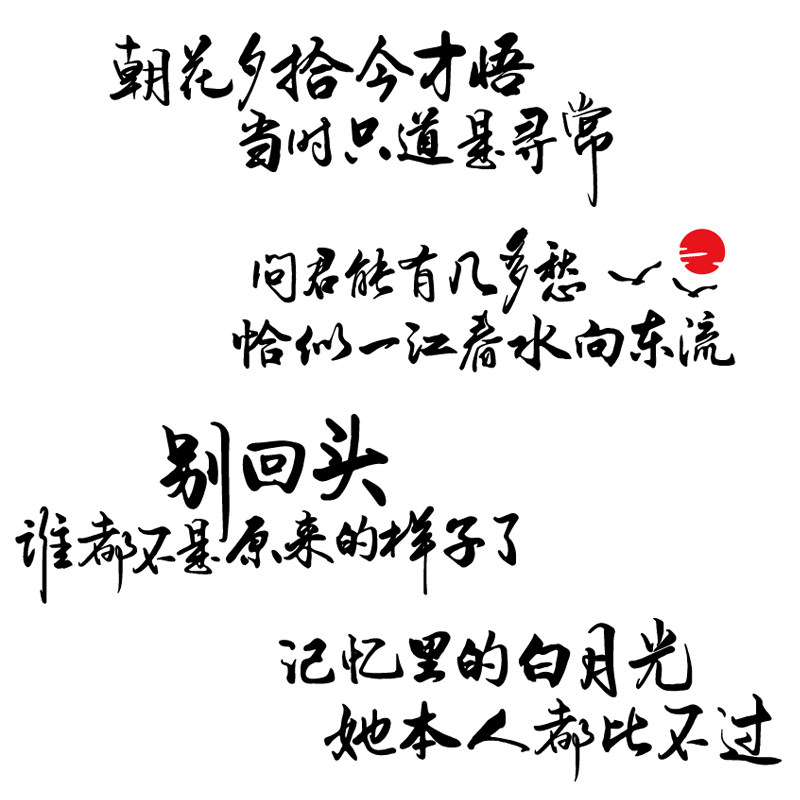 朝花夕拾今才悟
当时只道是寻常
问君能有几多愁
恰似一江春水向东流
别回头
谁都不是原来的样子了
记忆里的白月光
她本人都比不过